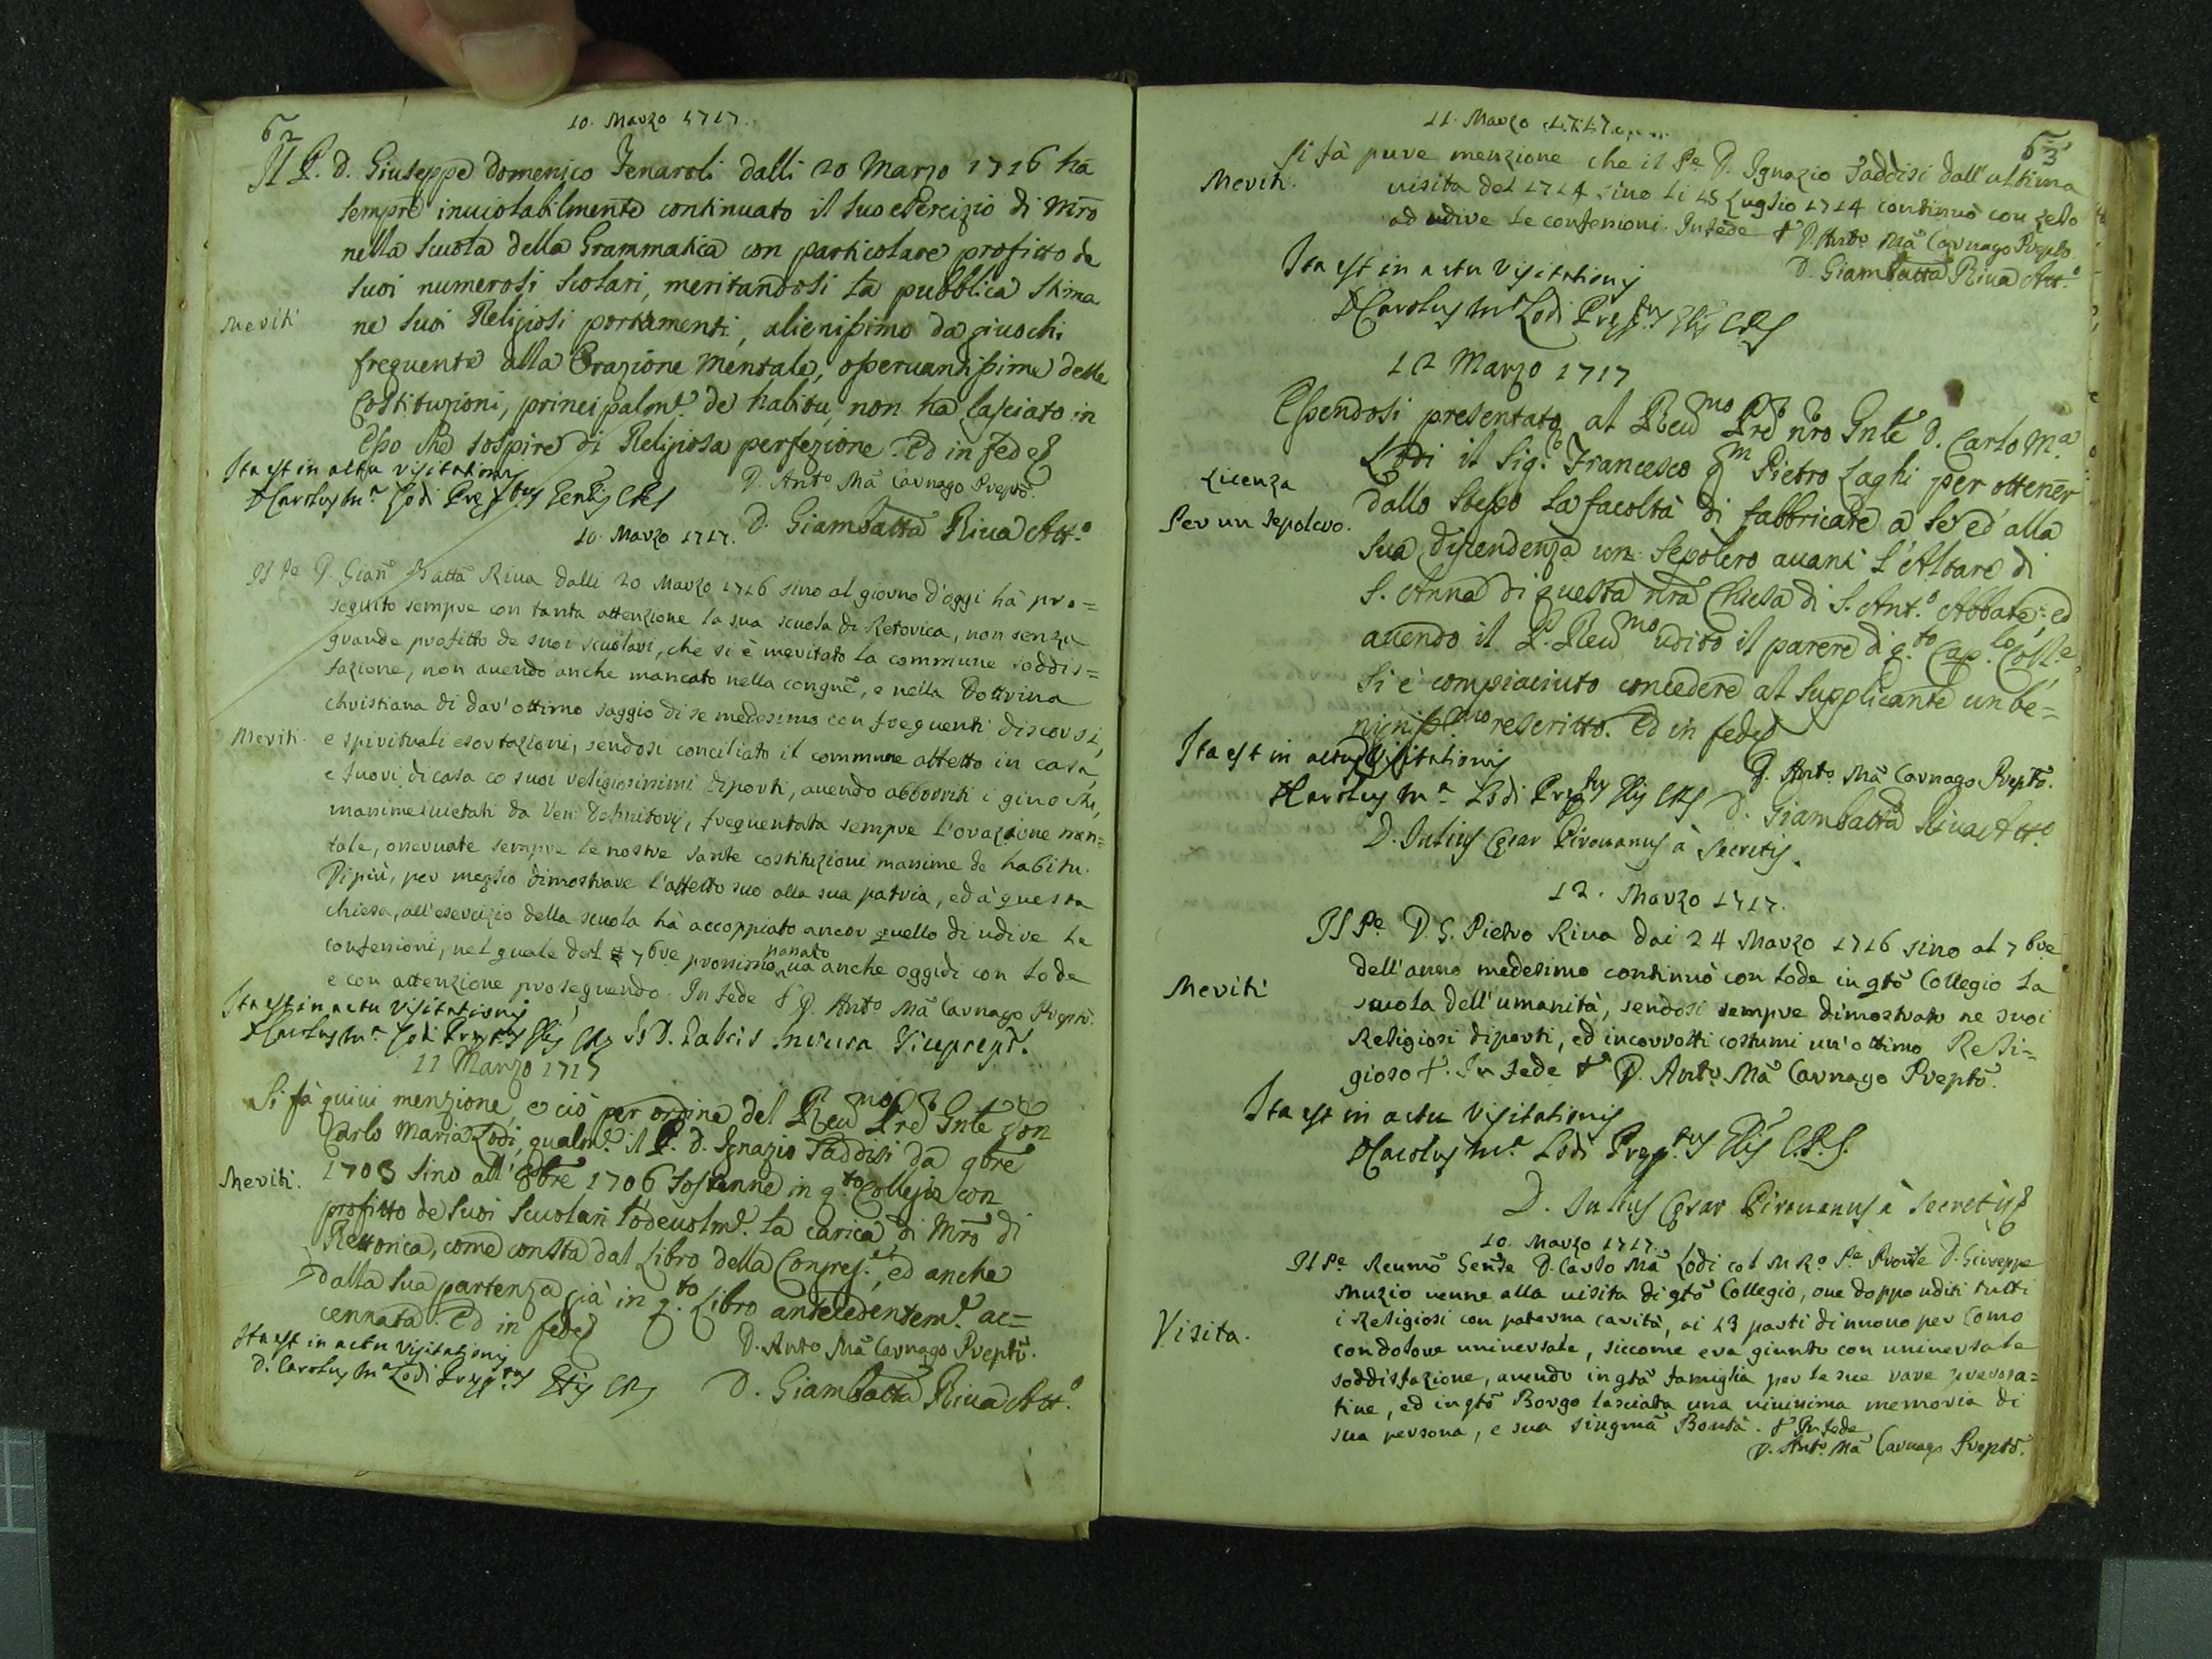 62
10. Marzo 1717.
Il P. D. Giuseppe Domenico Fenaroli dalli 20 Marzo 1716 ha
sempre inuiolabilmente continuato il suo esercizio di Mrõ
nella scuola della Grammatica con particolare profitto de
suoi numerosi scolari, meritandosi la pubblica stima
Meriti
ne suoi Religiosi portamenti, alienissimo da giuochi
frequente alla Orazione Mentale, osseruantissimo delle
Costituzioni, principalmte. de habitu, non ha lasciato in
Esso che sospire di Religiosa perfezione. Ed in fede
Ita est in actu visitationis
D. Carolus Ma. Lodi Prępptus Genlis CRS
D. Anto Mã Carnago Prepto.
D. Giambatta Riua Atto.
10. Marzo 1717.
Il Pe D. Gian Batta Riua dalli 20 Marzo 1716 sino al giorno d'oggi hà pro=
seguito sempre con tanta attenzione la sua scuola di Retorica, non senza
grande profitto de suoi scuolari, che si è meritato la commune soddis=
fazione, non auendo anche mancato nella congñe, e nella Dottrina
christiana di dar' ottimo saggio di se medesimo con frequenti discorsi,
Meriti.
e spirituali esortazioni, sendosi conciliato il commune affetto in casa,
e fuori di casa co suoi religiosissimi diporti, auendo abborriti i giuochi,
massime uietati da Ven: Definitorij, frequentata sempre l'orazione men=
tale, osseruate sempre le nostre sante costituzioni massime de habitu.
Di più, per meglio dimostrare l'affetto suo alla sua patria, ed à questa
chiesa, all'esercizio della scuola hà accoppiato ancor quello di udire le
confessioni, nel quale del 7bre prossimo passato ua anche oggidì con lode
e con attenzione proseguendo. In fede D. Anto Mã Carnago Prepto.
Ita est in actu visitationis
D. Carolus Ma. Lodi Prępptus Glis CRS
11 Marzo 1717
Si fà quiui menzione, e ciò per ordine del Reumo Pre Gnle Don
Carlo Maria Lodi, qualmte. il P. D. Ignazio Taddisi da 9bre
Meriti.
1703 sino all' 8bre 1706 sostenne in qto Collegio con
profitto de suoi scuolari lodeuolmte. la carica di Mrõ di
Rettorica, come consta dal Libro della Congreg.e, ed anche
dalla sua partenza già in qto. Libro antecedentemte. ac=
cennata. Ed in fede
Ita est in actu visitationis
D. Carolus Ma Lodi Prępptus Glis CRS
D. Anto Mã Carnago Prepto.
D. Giambatta Riua Atto.
63
11. Marzo 1717
Si fà pure menzione che il Pe D. Ignazio Taddisi dall'ultima
Meriti.
uisita del 1714 sino li 15 Luglio 1714 continuò con zelo
ad udire le confessioni. In fede D. Anto Mã Carnago Prepto.
D. Giambatta Riua Atto.
Ita est in actu visitationis
D. Carolus Ma Lodi Prępptus Glis CRS
12 Marzo 1717
Essendosi presentato al Reumo Pre nro Gnle D. Carlo Ma.
Licenza
Lodi il Sig.e Francesco qm Pietro Laghi per ottener
Per un sepolcro.
dallo stesso la facoltà di fabbricare a se ed' alla
sua discendenza un sepolcro auanti l'Altare di
S. Anna di questa nrã Chiesa di S. Anto. Abbate; ed
auendo il P. Reumo udito il parere di qto Cap.lo Colle,
si è compiaciuto concedere al supplicante un be=
nigniss.mo rescritto. Ed in fede
Ita est in actu visitationis
D. Anto Mã Carnago Prepto.
D. Carolus Ma. Lodi Prępptus Glis CRS
D. Giambatta Riua Atto
D. Iulius Cęsar Pirouanus à Secretis.
12. Marzo 1717.
Il Pe D. G. Pietro Riua dai 24 Marzo 1716 sino al 7bre
dell'anno medesimo continuò con lode in qtõ Collegio la
Meriti
scuola dell'umanità, sendosi sempre dimostrato ne suoi
Religiosi diporti, ed incorrotti costumi un'ottimo Reli=
gioso. In fede D. Anto Mã Carnago Prepto.
Ita est in actu visitationis
D. Carolus Ma. Lodi Prępptus Glis C.R.S.
D. Iulius Cęsar Pirouanus à Secretis
10. Marzo 1717.
Il Pe Reumõ Genle D. Carlo Mã Lodi col M Ro Pe Pronle D. Giuseppe
Muzio uenne alla uisita di qtõ Collegio, oue doppo uditi tutti
i Religiosi con paterna carità, ai 13 partì di nuouo per Como
Visita.
con dolore uniuersale, siccome era giunto con uniuersale
soddisfazione, auendo in qtã famiglia per le sue rare preroga=
tiue, ed in qtõ Borgo lasciata una uiuissima memoria di
sua persona, e sua singmã Bontà. In fede
D. Anto Mã Carnago Prepto.